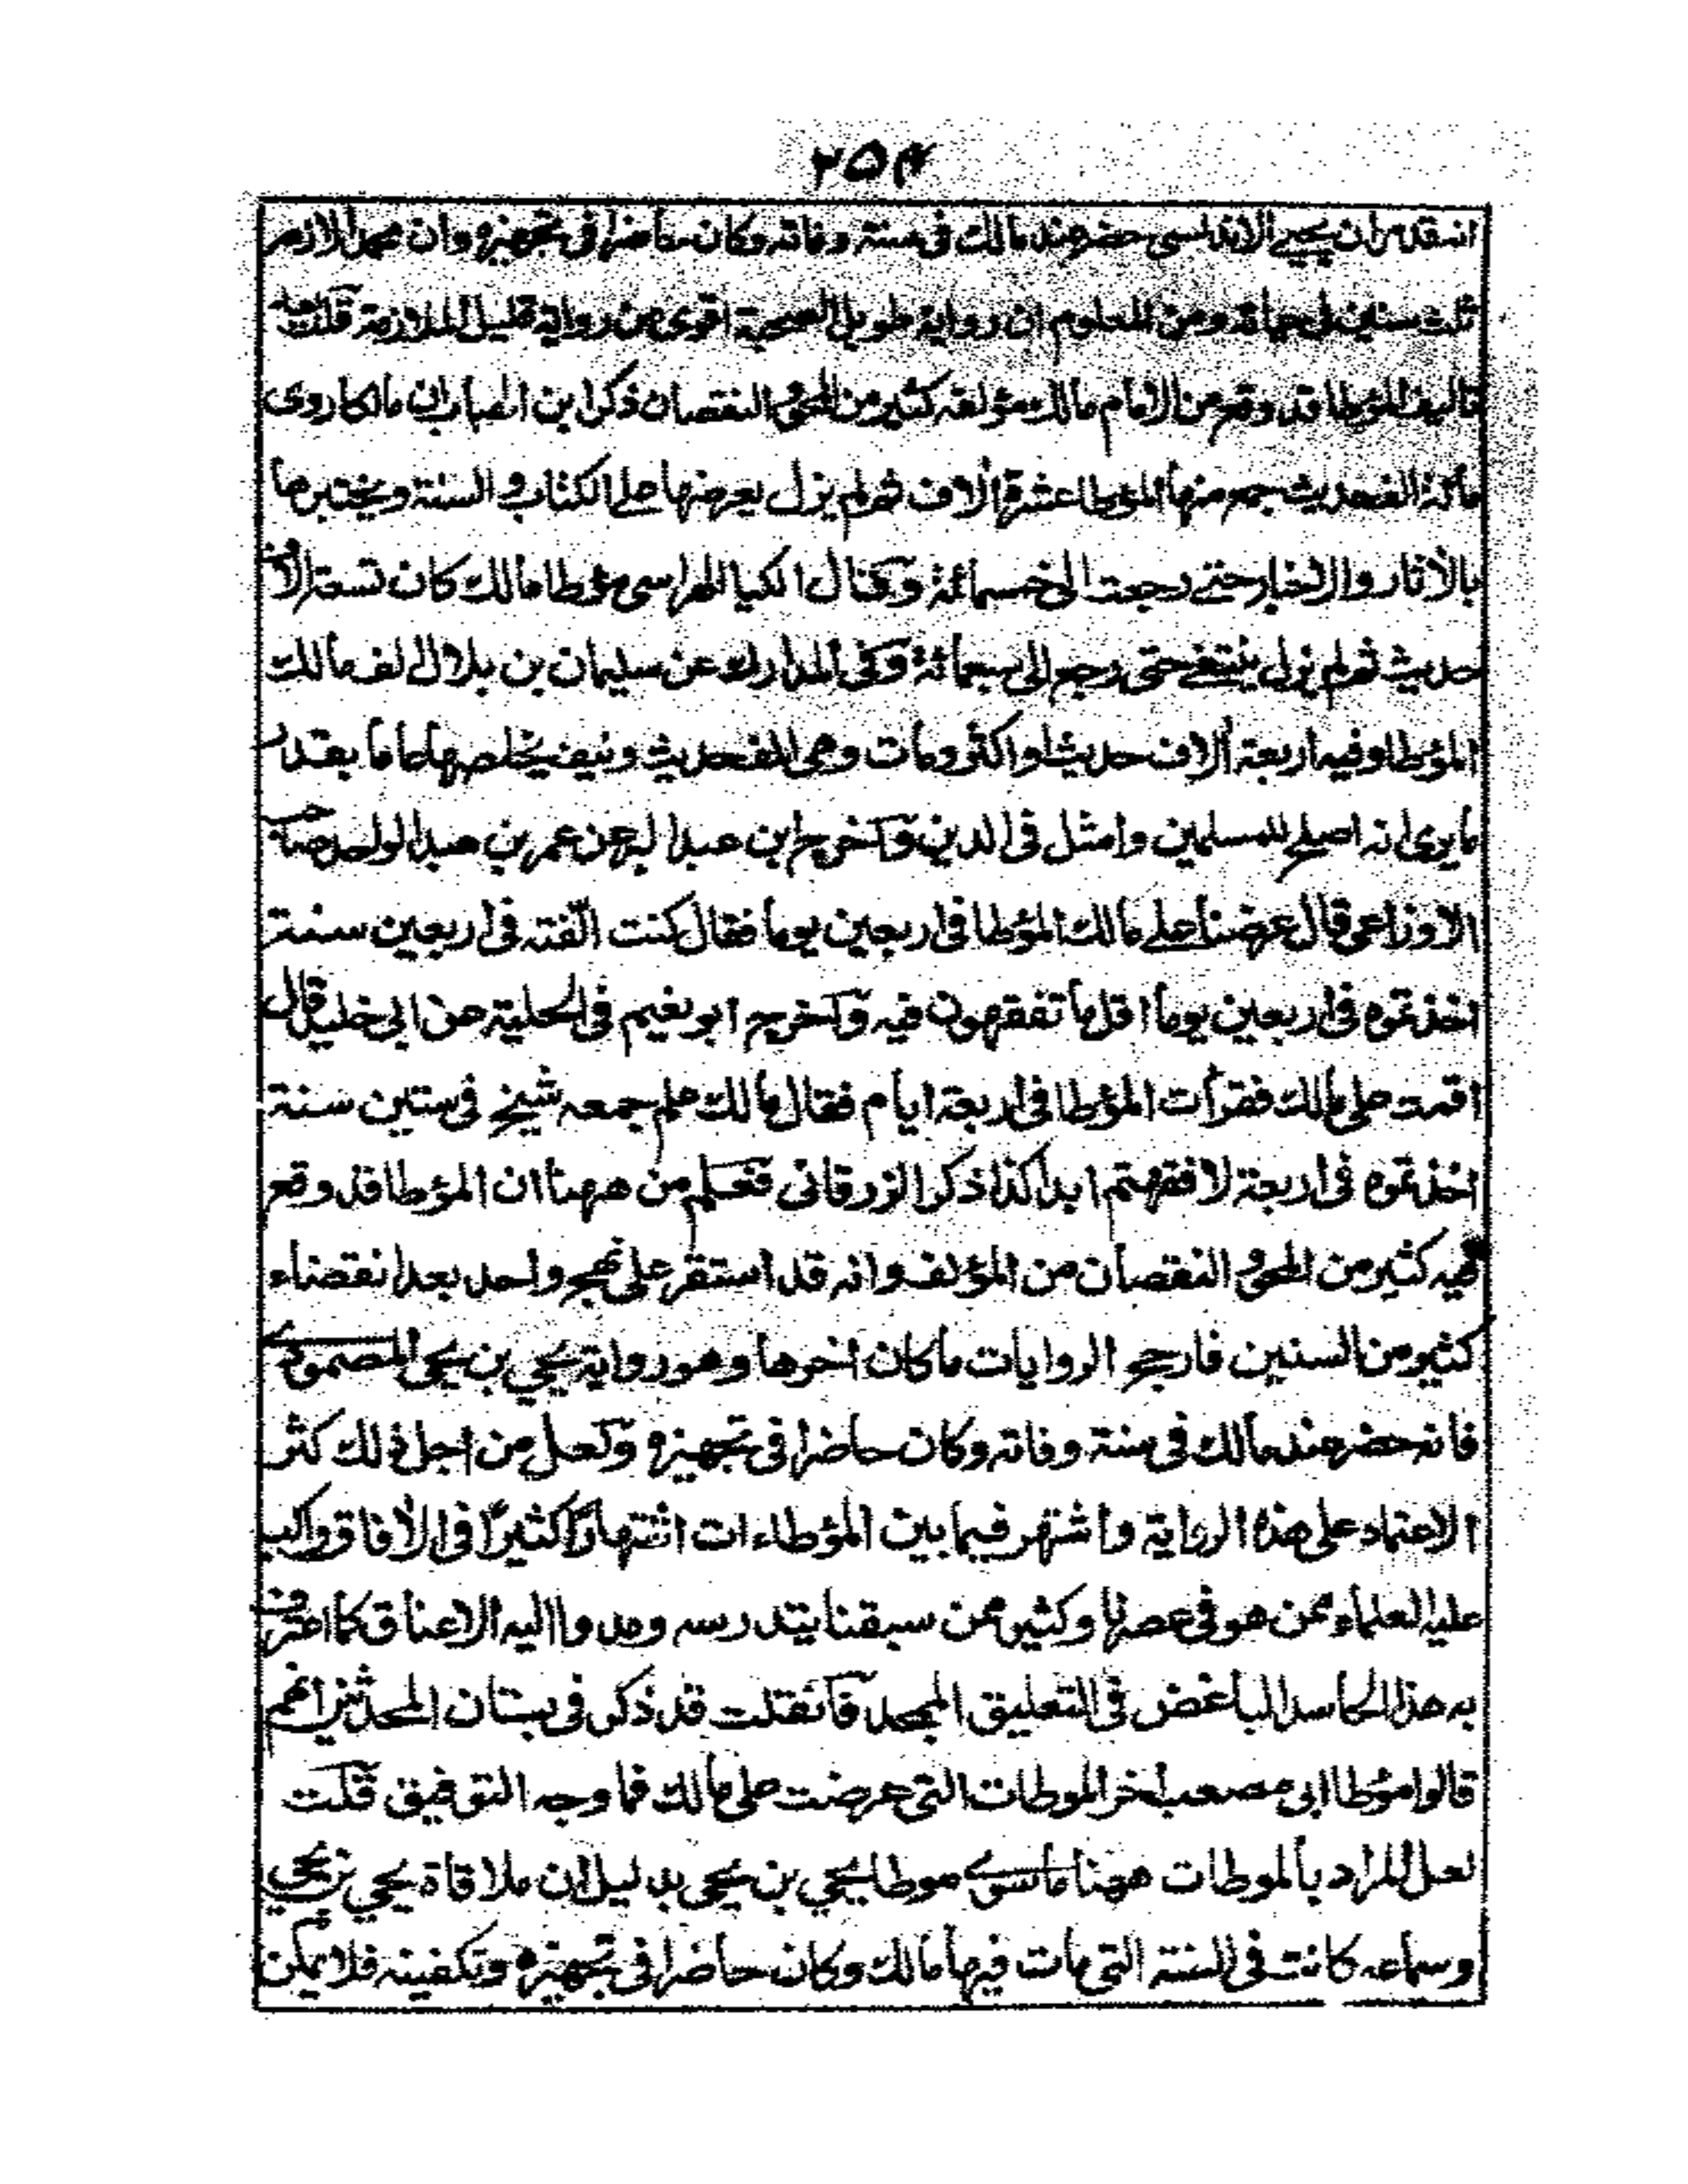 ٢٥٤
انه قد مر ان يحيى الاندلسى حضر عند مالك فى سنة وفاته وكان حاضرا فى تجهيزه وان محمدا لازمه
ثلث سنين من حياته ومن المعلوم ان رواية طويل الصحبة اقوى من رواية قليل الملازمة قلت
تاليف المؤطا قد وقع من الامام مالك مؤلفه كثير من المحو والنقصان ذكر ابن الهباب ان مالكا روى
مائة الف حديث جمع منها المؤطا عشرة آلاف ثم لم يزل يعرضها على الكتاب والسنة ويختبرها
بالآثار والاخبار حتى رجعت الى خمسمائة وقال الكيا الهراسى مؤطا مالك كان تسعة الاف
حديث ثم لم يزل ينتقى حتى رجع الى سبعمائة وفى المدارك عن سليمان بن بلال الف مالك
المؤطا وفيه اربعة آلاف حديث او اكثر ومات وهى الف حديث ونيف يخلصها عاما بقدر
ما يرى انه اصلح للمسلمين وامثل فى الدين وآخرج ابن عبد البر عن عمر بن عبد الواحد صاحب
الاوزاعى قال عرضنا على مالك المؤطا فى اربعين يوما فقال كنت الّفته فى اربعين سنة
اخذتموه فى اربعين يوما اقل ما تفقهون فيه وآخرج ابو نعيم فى الحلية عن ابى خليد قال
اقمت على مالك فقرأت المؤطا فى اربعة ايام فقال مالك علم جمعه شيخ فى ستين سنة
اخذتموه فى اربعة لا فقهتم ابدا كذا ذكر الزرقانى فعلم من ههنا ان المؤطا قد وقع
فيه كثير من المحو والنقصان من المؤلف وانه قد استقر على نهج واحد بعد انقضاء
كثير من السنين فارجح الروايات ما كان اخرها وهو رواية يحيى بن يحيى المصمودى
فانه حضر عند مالك فى سنة وفاته وكان حاضرا فى تجهيزه ولعل من اجل ذلك كثر
الاعتماد على هذه الرواية واشتهر فيما بين المؤطاءات اشتهارًا كثيرًا فى الآفاق واكب
عليه العلماء ممن هو فى عصرنا وكثير ممن سبقنا بتدرسه ومدوا اليه الاعناق كما اعترف
به هذا الحاسد الباغض فى التعليق الممجد فآن قلت قد ذكر فى بستان المحدثين انهم
قالوا مؤطا ابى مصعب آخر الموطات التى عرضت على مالك فما وجه التوفيق قلت
لعل المراد بالموطات ههنا ما سوى موطا يحيى بن يحيى بدليل ان ملاقاة يحيى بن يحيى
وسماعه كانت فى السنة التى مات فيها مالك وكان حاضرا فى تجهيزه وتكفينه فلا يمكن